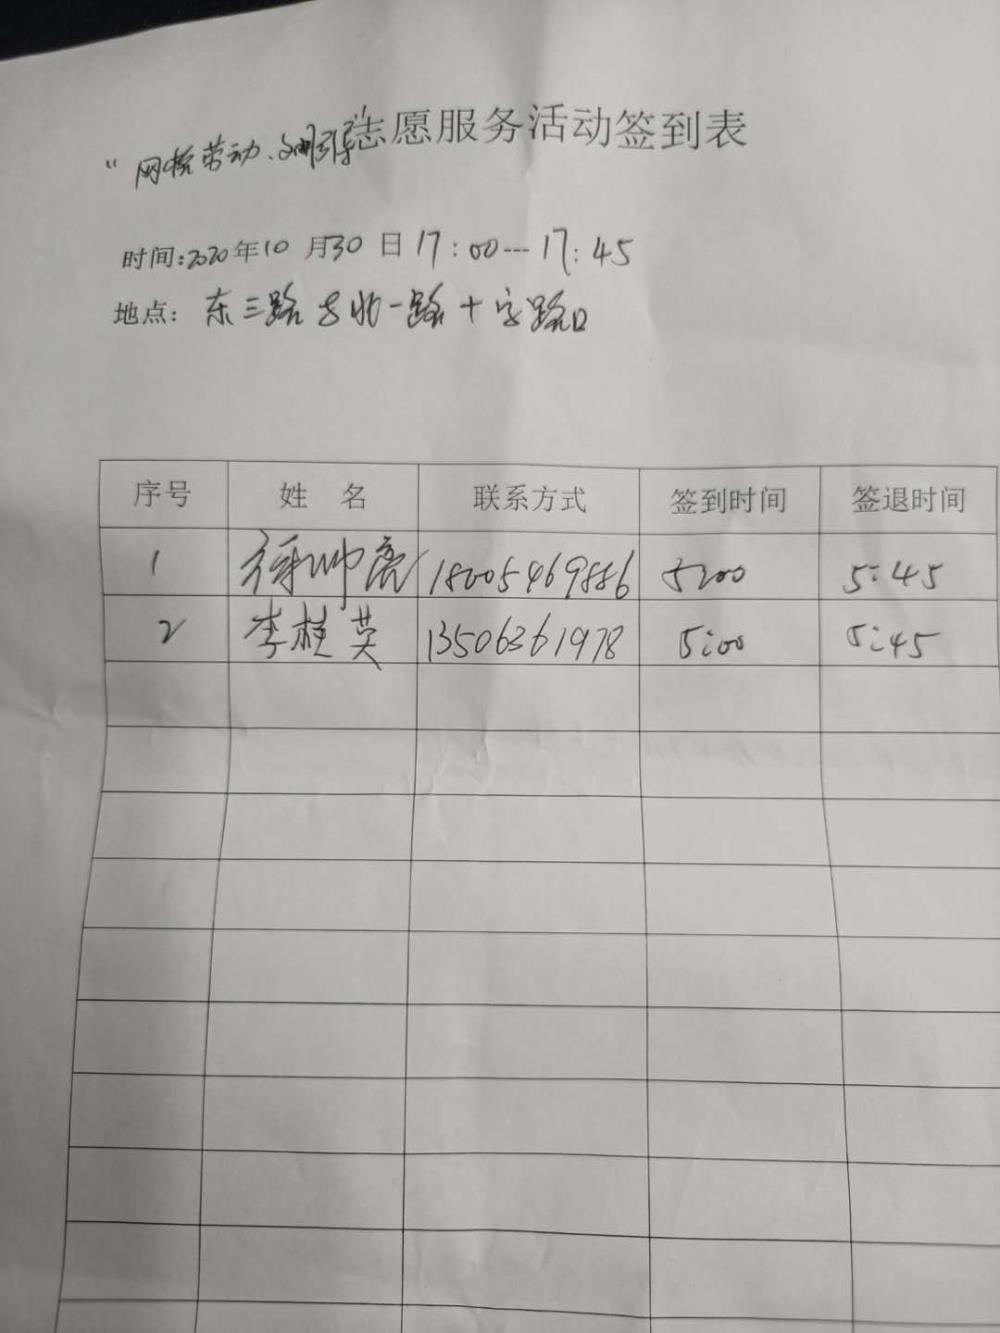 “网格劳动、文明引导”志愿服务活动签到表
时间:2020年10月30日17:00---17:45
地点：东三路与北一路十字路口
序号 姓 名 联系方式 签到时间 签退时间
1 徐帅亮 18005469886 5:00 5:45
2 李桂英 13506361978 5:00 5:45